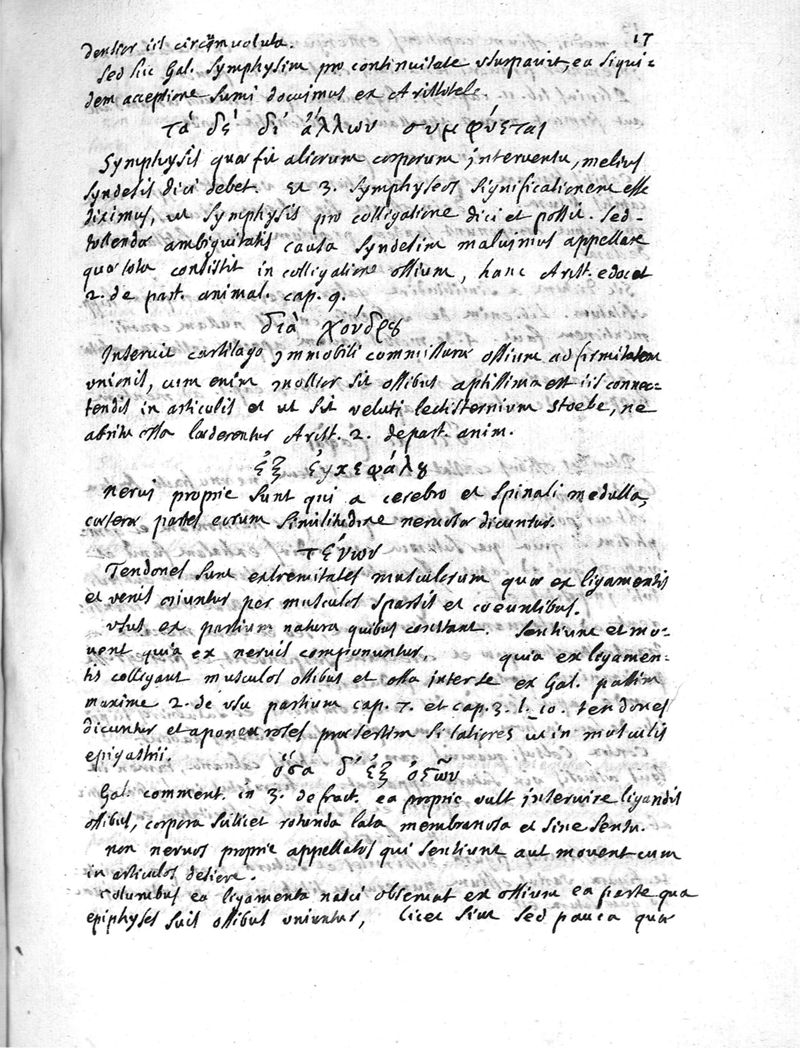 17
densior iis circumvoluta.
Sed sic Gal. Symphysim pro continuitate usurpavit, ea siqui-
dem acceptione sumi docuimus ex Aristotele.
τὰ δὲ δἰ ἄλλων συμφύεται
Symphysis quae fit aliorum corporum interventu, melius
syndesis dici debet. Et 3. Symphyseos significationem esse
diximus, ut symphysis pro colligatione dici et possit. Sed
tollendae ambiguitatis causa syndesim maluimus appellare
quae tota consistit in colligatione ossium, hanc Arist. edocet
2. de part. animal. cap. 9.
διὰ χόνδρȣ
Intervit cartilago immobili commissurae ossium ad firmitatem
unionis, cum enim mollior sit ossibus aptissima est iis connec-
tendis in articulis et ut sit veluti lectisternium stoebe, ne
abritu ossa laederentur Arist. 2. de part. anim.
ἐξ ἐγκεφάλȣ
nervi proprie sunt qui a cerebro et spinali medulla,
caeterae partes eorum similitudine nervosae dicuntur.
τένων
Tendones sunt extremitates musculorum quae ex ligamentis
et venis oriuntur per musculos sparsis et coeuntibus.
usus ex partium natura quibus constant. Sentiunt et mo-
vent quia ex nervis componuntur, quia ex ligamen-
tis colligant musculos ossibus et ossa inter se ex Gal. passim
maxime 2. de usu partium cap. 7. et cap. 3. l. 10. tendones
dicuntur et aponeuroses praesertim si latiores ut in musculis
epigastrii.
ὅσα δ' ἐξ ὀσῶν
Gal. comment. in 3. de fract. ea proprie vult intervire ligandis
ossibus, corpora scilicet rotunda lata membranosa et sine sensu.
non nervos proprie appellatos qui sentiunt aut movent cum
in articulos desiere.
Columbus ea ligamenta nasci observat ex ossium ea parte qua
epiphyses suis ossibus uniuntur, licet sint sed pauca quae